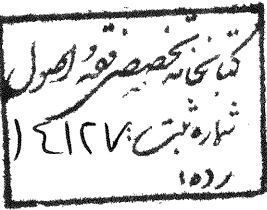 کتابخانه تخصصی فقه و اصول
شماره ثبت: ۱۴۱۲۷
رده: